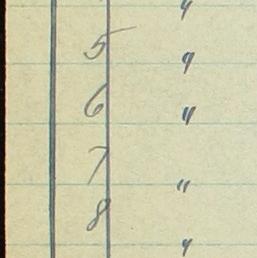 "
5 "
6 "
7 "
8 "